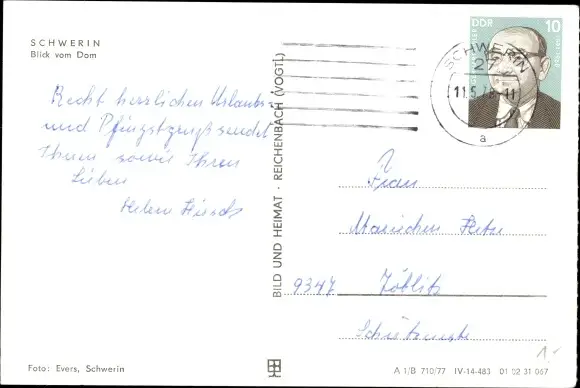 SCHWERIN
Blick vom Dom
Recht herzlichen Urlaubs-
und Pfingstgruß sendet
Ihnen sowie Ihren
Lieben
Helene
BILD UND HEIMAT · REICHENBACH (VOGTL)
DDR
10
SCHWERIN
27
11.5.78-11
a
Frau
9347 Zöblitz
Foto: Evers, Schwerin
A 1/B 710/77 IV-14-483 01 02 31 067
1,-